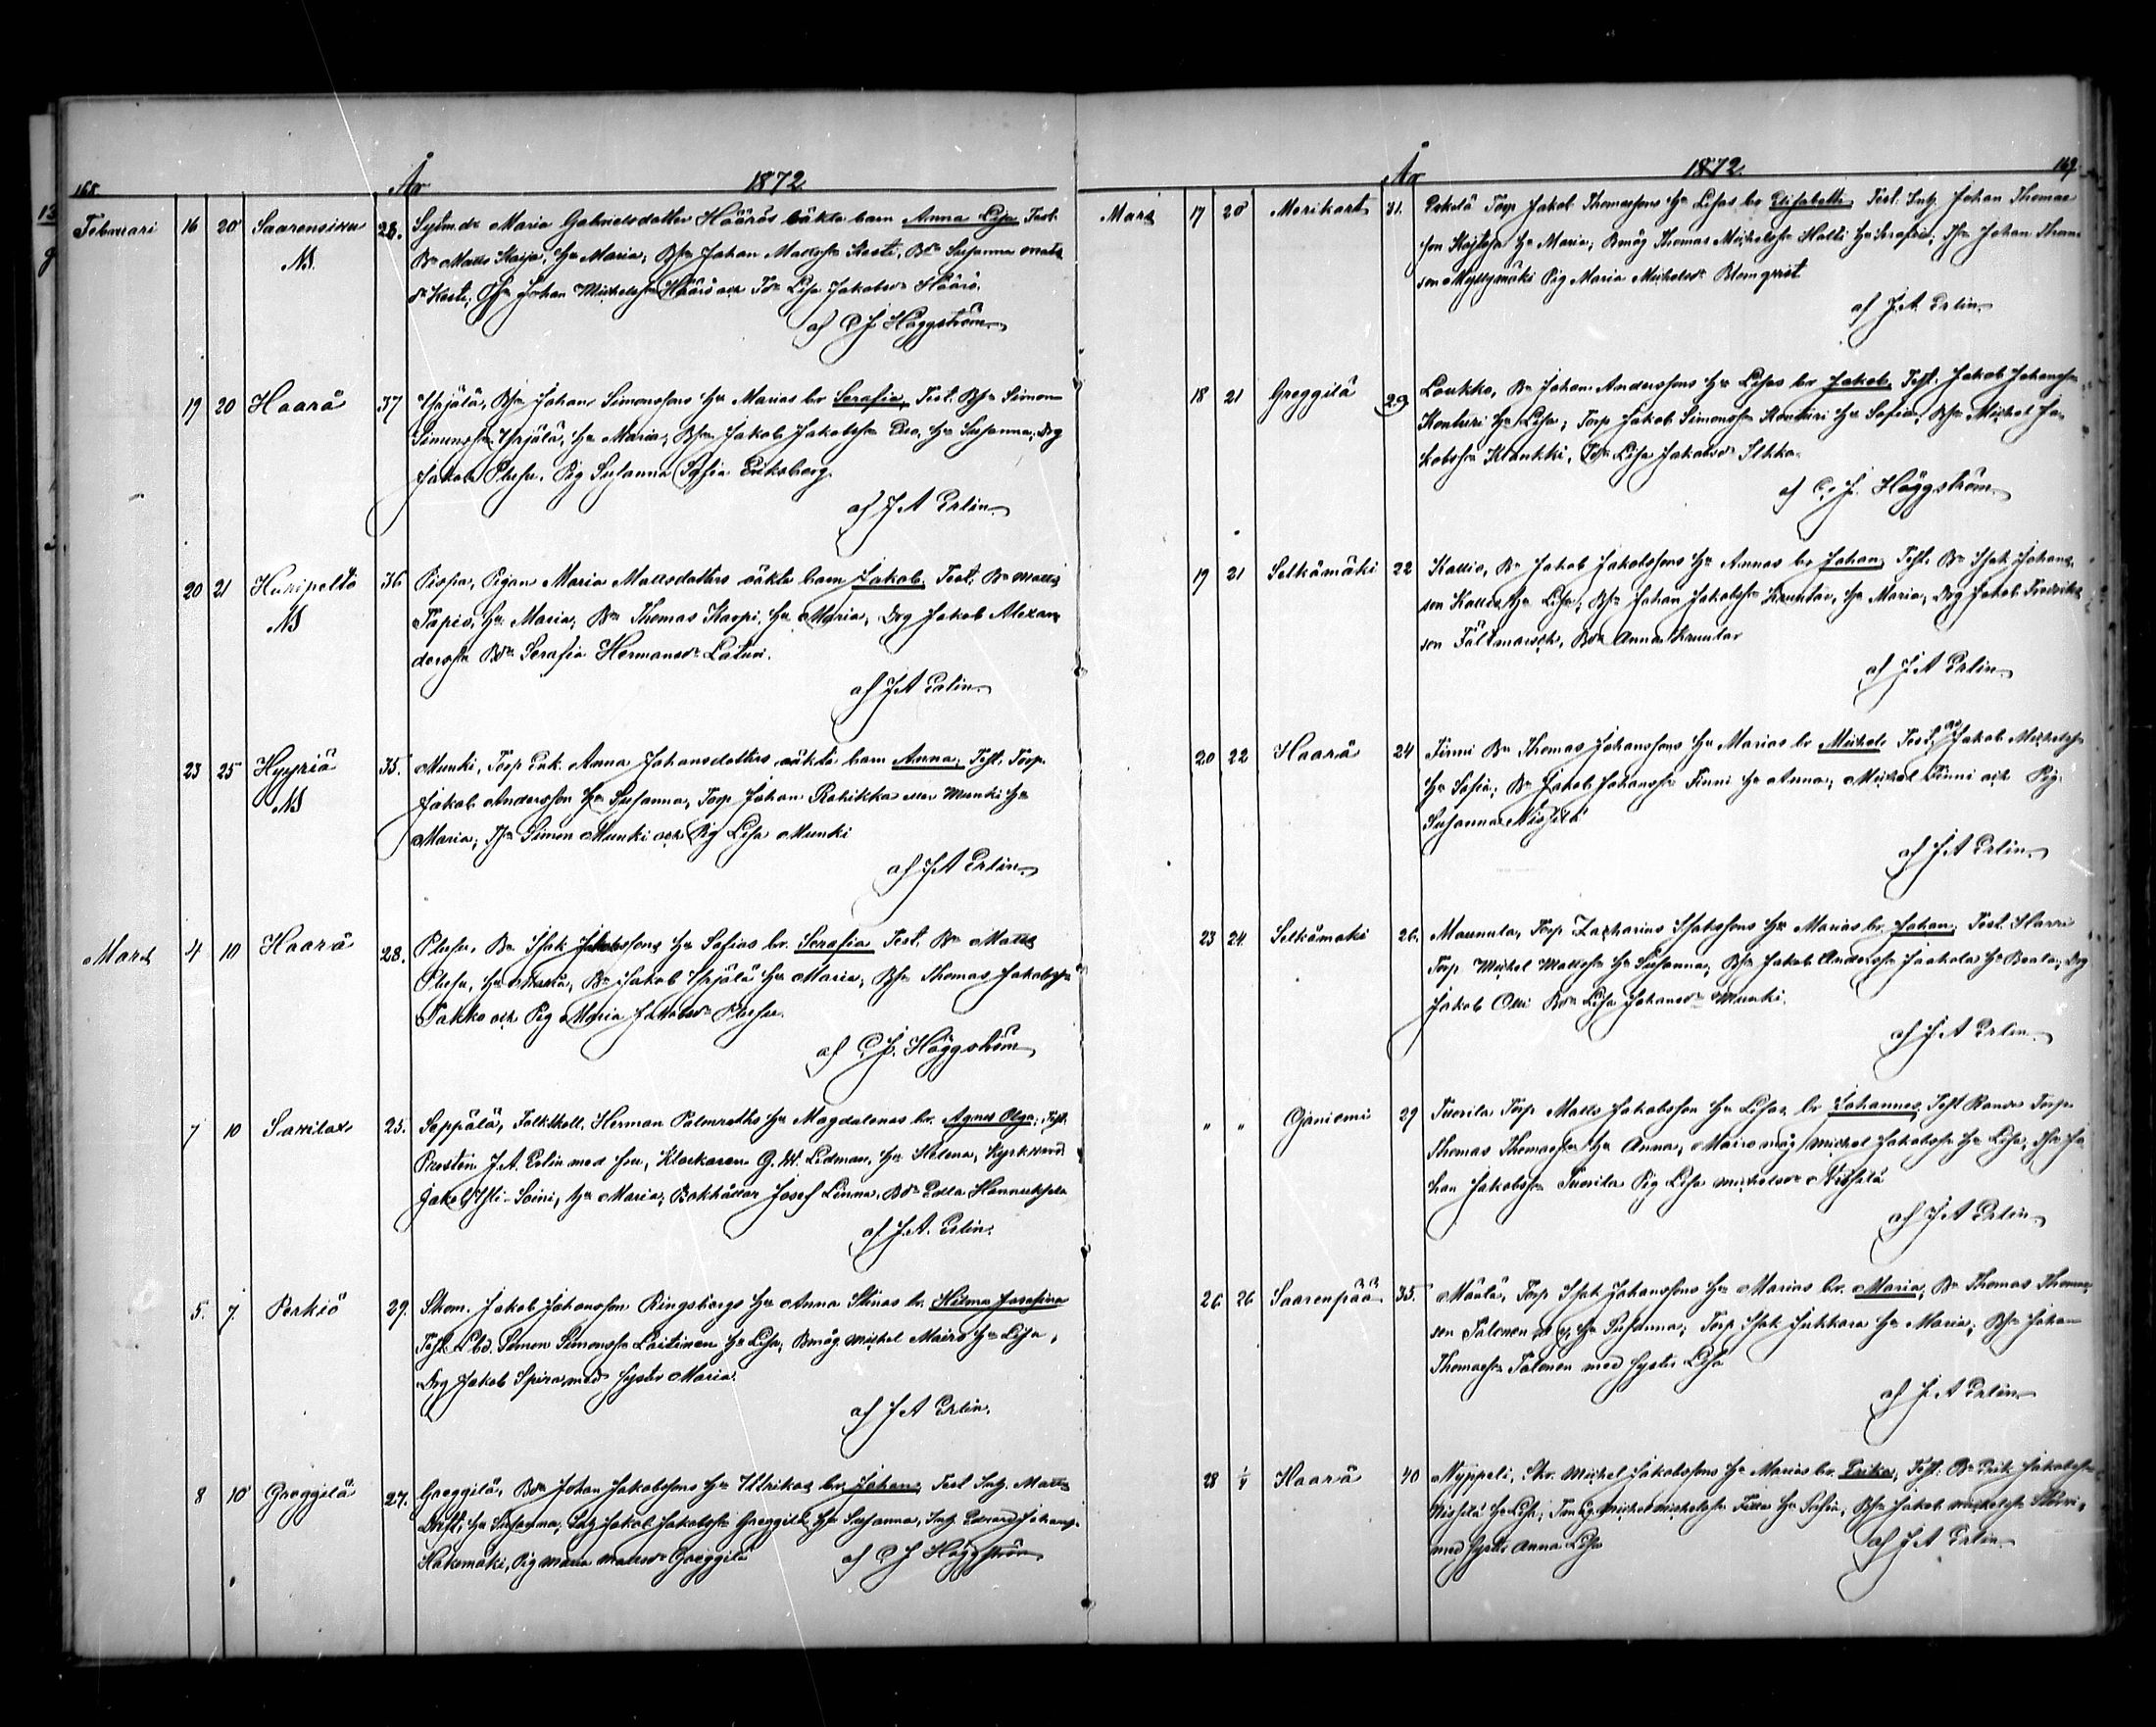 168. År 1872
Februari 16 20 Saarensivu 28. Sytm.dr Maria Gabrielsdotter Häärös oäkta barn Anna Lisa Test.
NB Bn Matts Kaija, Hu Maria, Bsn Johan Mattssn Kesti, Bdr Susanna Matts
dr Kesti, Johan Michelssn Häärö och Lisa Jakobsdr Häärö.
af C J Häggström
19 20 Haarä 37 Yrjälä, Bsn Johan Simonssons Hu Marias br Serafia, Test. Bsn Simon
Simonssn Yrjälä, Hu Maria, Bsn Jakob Jakobssn Hu Susanna, Drg
Jakob Plusu, Pig Susanna Sofia Eriksberg
af J A Erlin
20 21 Huripelto 36 Pispa, Pigan Maria Mattsdotters oäkta barn Jakob, Test. Bn Matts
NB Tapio, Hu Maria, Bn Thomas Karpi, Hu Maria, Drg Jakob Alexan
derssn Bdr Serafia Hermansdr Laturi.
af J A Erlin
23 25 Hyyriä 35. Munki, Torp Enk. Anna Johansdotters oäkta barn Anna, Test. Torp.
NB Jakob Andersson Hu Susanna, Torp Johan Rahikka Munki Hu
Maria, Simon Munki och Pig Lisa Munki
af J A Erlin
Mars 4 10 Haarä 28. Plusu, Bn Isak Jakobssons Hu Sofias br. Serafia Test. Bn Matts
Plusu, Hu Maria, Bn Jakob Yrjälä Hu Maria, Bsn Thomas Jakobssn
Takko och Pig Maria Jakobsdr Plusu.
af C J. Häggström
7 10 Savilax 25. Seppälä, Folksk. Herman Palmroths Hu Magdalenas br. Agnes Olga, Test.
Presten J. A. Erlin med fru, Klockaren G. W. Ledman, Hu Helena, Kyrkvärd
Jakob Yli-Soini, Hu Maria, Bokhållar Josef Linna, Bdr Hannuksela
af J. A. Erlin.
5. 7. Perkiö 29. Skom. Jakob Johansson Ringsbergs Hu Anna Stinas br. Hilma Josefina
Test. Simon Simonssn Laitinen Hu Lisa, Bmåg Michel Mairo Hu Lisa,
Drg Jakob Spira med syster Maria.
af J A Erlin.
8 10 Greggilä 27. Greggilä, Bn Johan Jakobssons Hu Ulrikas br. Johan, Test Inhy. Matts
Hu Susanna, Inhy Jakob Jakobssn Greggilä Hu Susanna, Inhy Edvard Johanss.
Hakomäki, Pig Maria Mattsdr Greggilä af C J Häggström
År 1872. 169.
Mars 17 20 Merikart 31. Eskelä Torp Jakob Thomassons Hu Lisas br Elisabeth Test. Inhy Johan Thomas
son Hu Maria, Bmåg Thomas Michelssn Halli Hu Serafia, Johan Thomas
son Myllymäki Pig Maria Michelsdr Blomqvist
af J. A. Erlin.
18 21 Greggilä 29 Loukko, Bn Johan Anderssons Hu Lisas br Jakob, Test. Jakob Johanssn
Kontiuri Hu Lisa, Torp Jakob Simonssn Kontiuri Hu Sofia, Bsn Michel Ja
kobssn Klaukki, Lisa Jakobsdr Ilkka.
af C. J. Häggström
19 21 Selkämäki 22 Kallio, Bn Jakob Jakobssons Hu Annas br Johan, Test. Bn Isak Johans
son Kallio Hu Lisa, Bsn Johan Jakobssn Kruntar, Hu Maria, Drg Jakob Fredriks
son Fältmarsch, Bdr Anna Kruntar
af J A Erlin
20 22 Haarä 24 Finni Bn Thomas Johanssons Hu Marias br Michel, Test. Jakob Michelssn
Hu Sofia, Bn Jakob Johanssn Finni Hu Anna, Michel Finni och Pig
Susanna Nissilä
af J A Erlin.
23 24 Selkämäki 26. Maunula, Torp Zacharias Isakssons Hu Marias br. Johan, Test. Harri
Torp Michel Mattssn Hu Susanna, Bsn Jakob Anderssn Jaakola Hu Beata, Drg
Jakob Olli Bdr Lisa Johansdr Munki.
af J A Erlin
" " Ojaniemi 29 Tuorila Torp Matts Jakobsson Hu Lisas br Johannes, Test Torp.
Thomas Thomassn Hu Anna, Mairo måg Michel Jakobssn Hu Lisa, Jo
han Jakobssn Tuorila Pig Lisa Michelsdr Nissilä
af J A Erlin
26 26 Saarenpää 35. Määlä, Torp Isak Johanssons Hu Marias br. Maria, Bn Thomas Thomas
son Talonen Hu Susanna, Torp Isak Jukkara Hu Maria, Bsn Johan
Thomassn Talonen med syster Lisa
af J A Erlin
28 1/4 Haarä 40 Nyppeli, Skr. Michel Jakobssons Hu Marias br. Erika, Test. Bn Erik Jakobssn
Nissilä Hu Lisa, Michel Michelssn Hu Sofia, Bsn Jakob Michelssn
med syster Anna Lisa af J A Erlin.